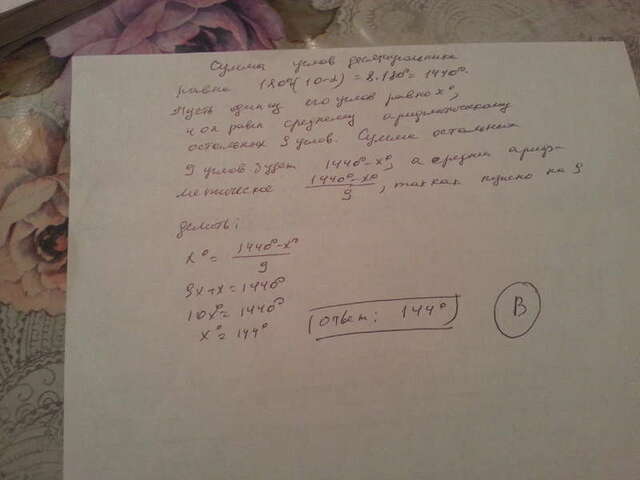 Сумма углов десятиугольника
равна 180°(10-2) = 8·180° = 1440°.
Пусть один из его углов равно x°,
и он равен среднему арифметическому
остальных 9 углов. Сумма остальных
9 углов будет 1440°-x°, а средняя ариф-
метическое (1440°-x°)/9, так как нужно на 9
делить;
x° = (1440°-x°)/9
9x+x = 1440°
10x° = 1440°
x° = 144°
Ответ: 144°
В